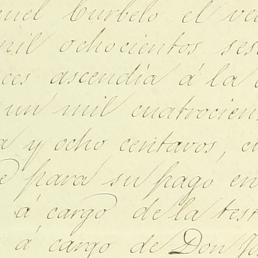 uel Curbelo el ve
mil ochocientos ses
ces ascendía á la
un mil cuatrocien
a y ocho centavos, c
e para su pago en
á cargo de la test
á cargo de Don Jo